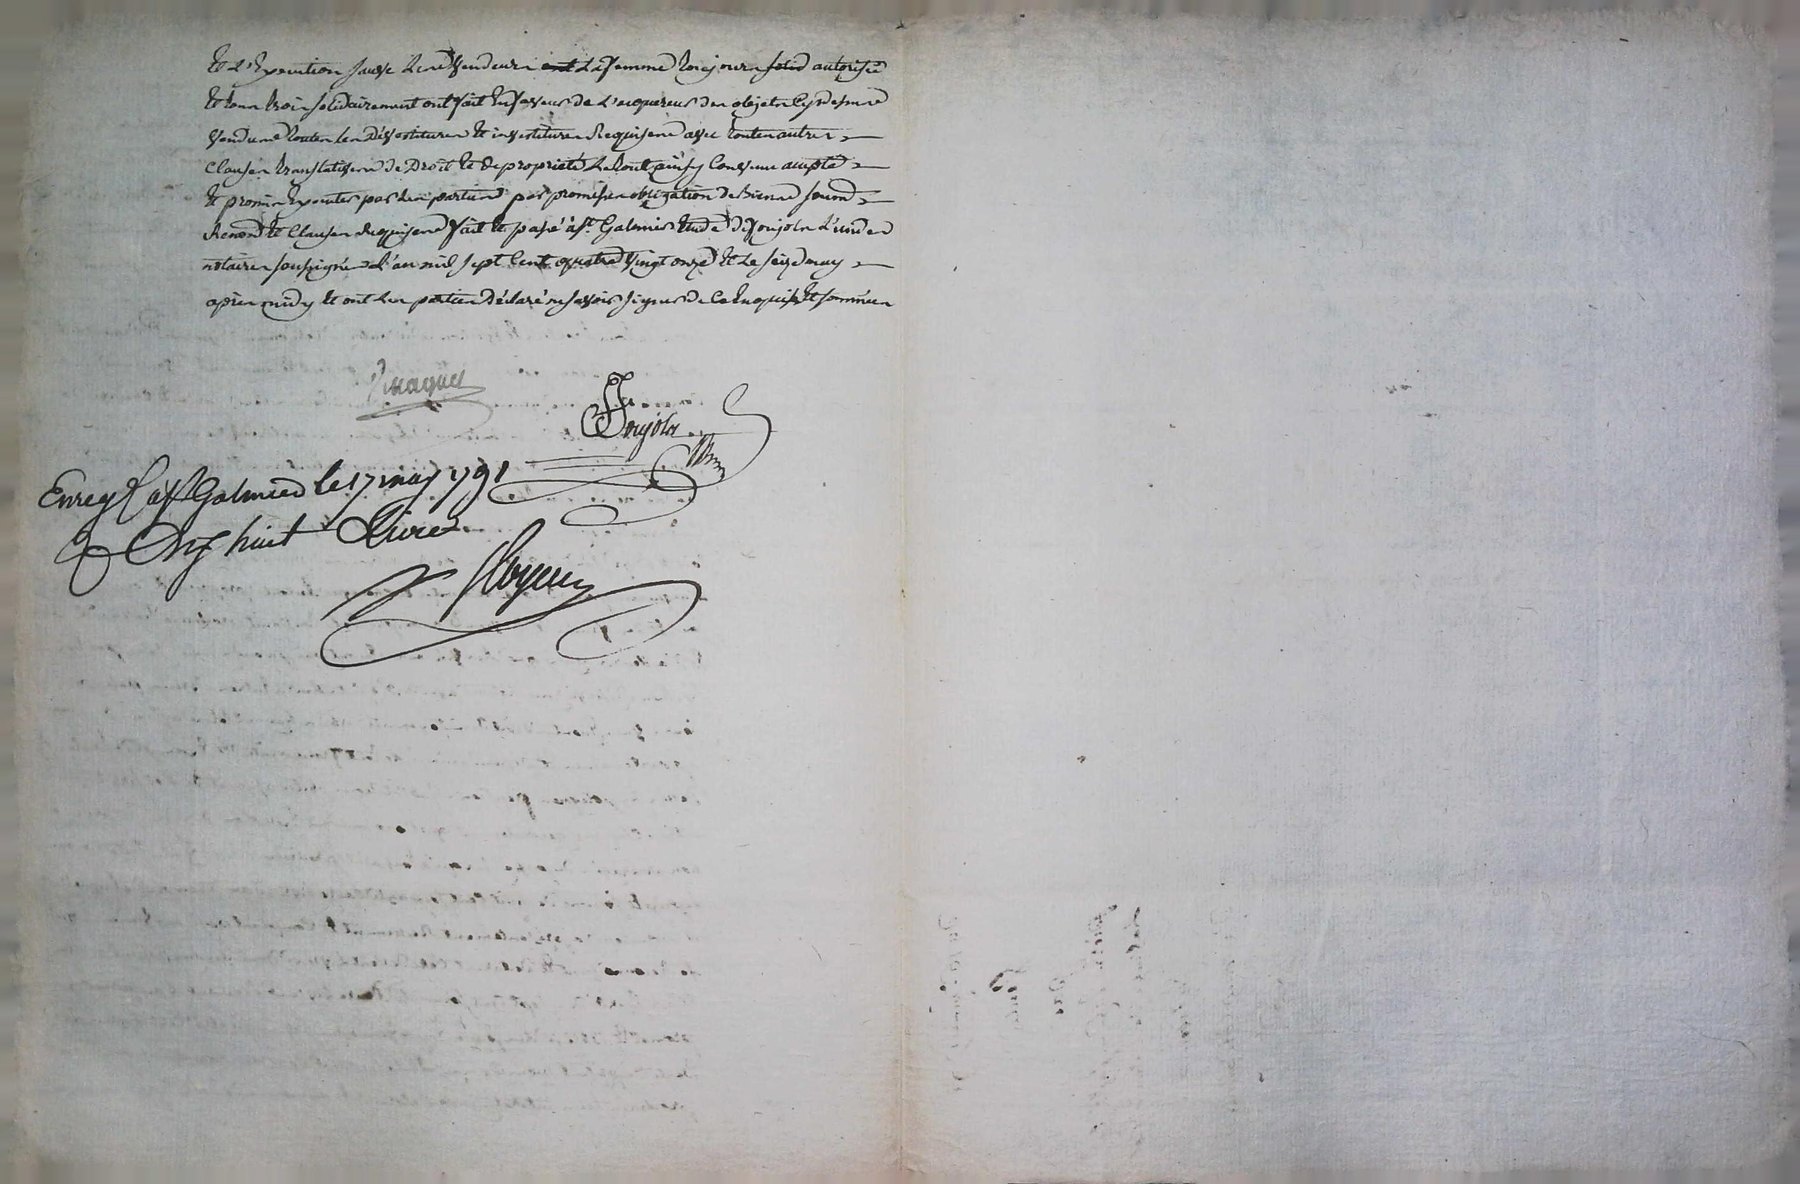 Et L'Execution faisse Le ne Vendeur et La femme toujours solid autorisée
Et tous trois solidairement ont fait En faveur de L'acquereur des objets Cydessus
Vendus toutes Les Devestitures Et investitures Requises avec toutes autres
Clauses translatives de Droit Et de propriété Le tout ainsy Convenu accepté
Et promis Executer par Les parties par promesses obligation de Biens soum.
Renon. Et Clauses Requises fait Et passé à St. Galmier Etude de Foujols L'un des
notaires soussignés L'an mil sept Cent quatre vingt onze Et Le seize may
après midy Et ont Les parties Déclaré ne savoir signer de Ce Enquises Et sommées
Foujols
Enreg à St Galmier le 17 may 1791
huit Livres